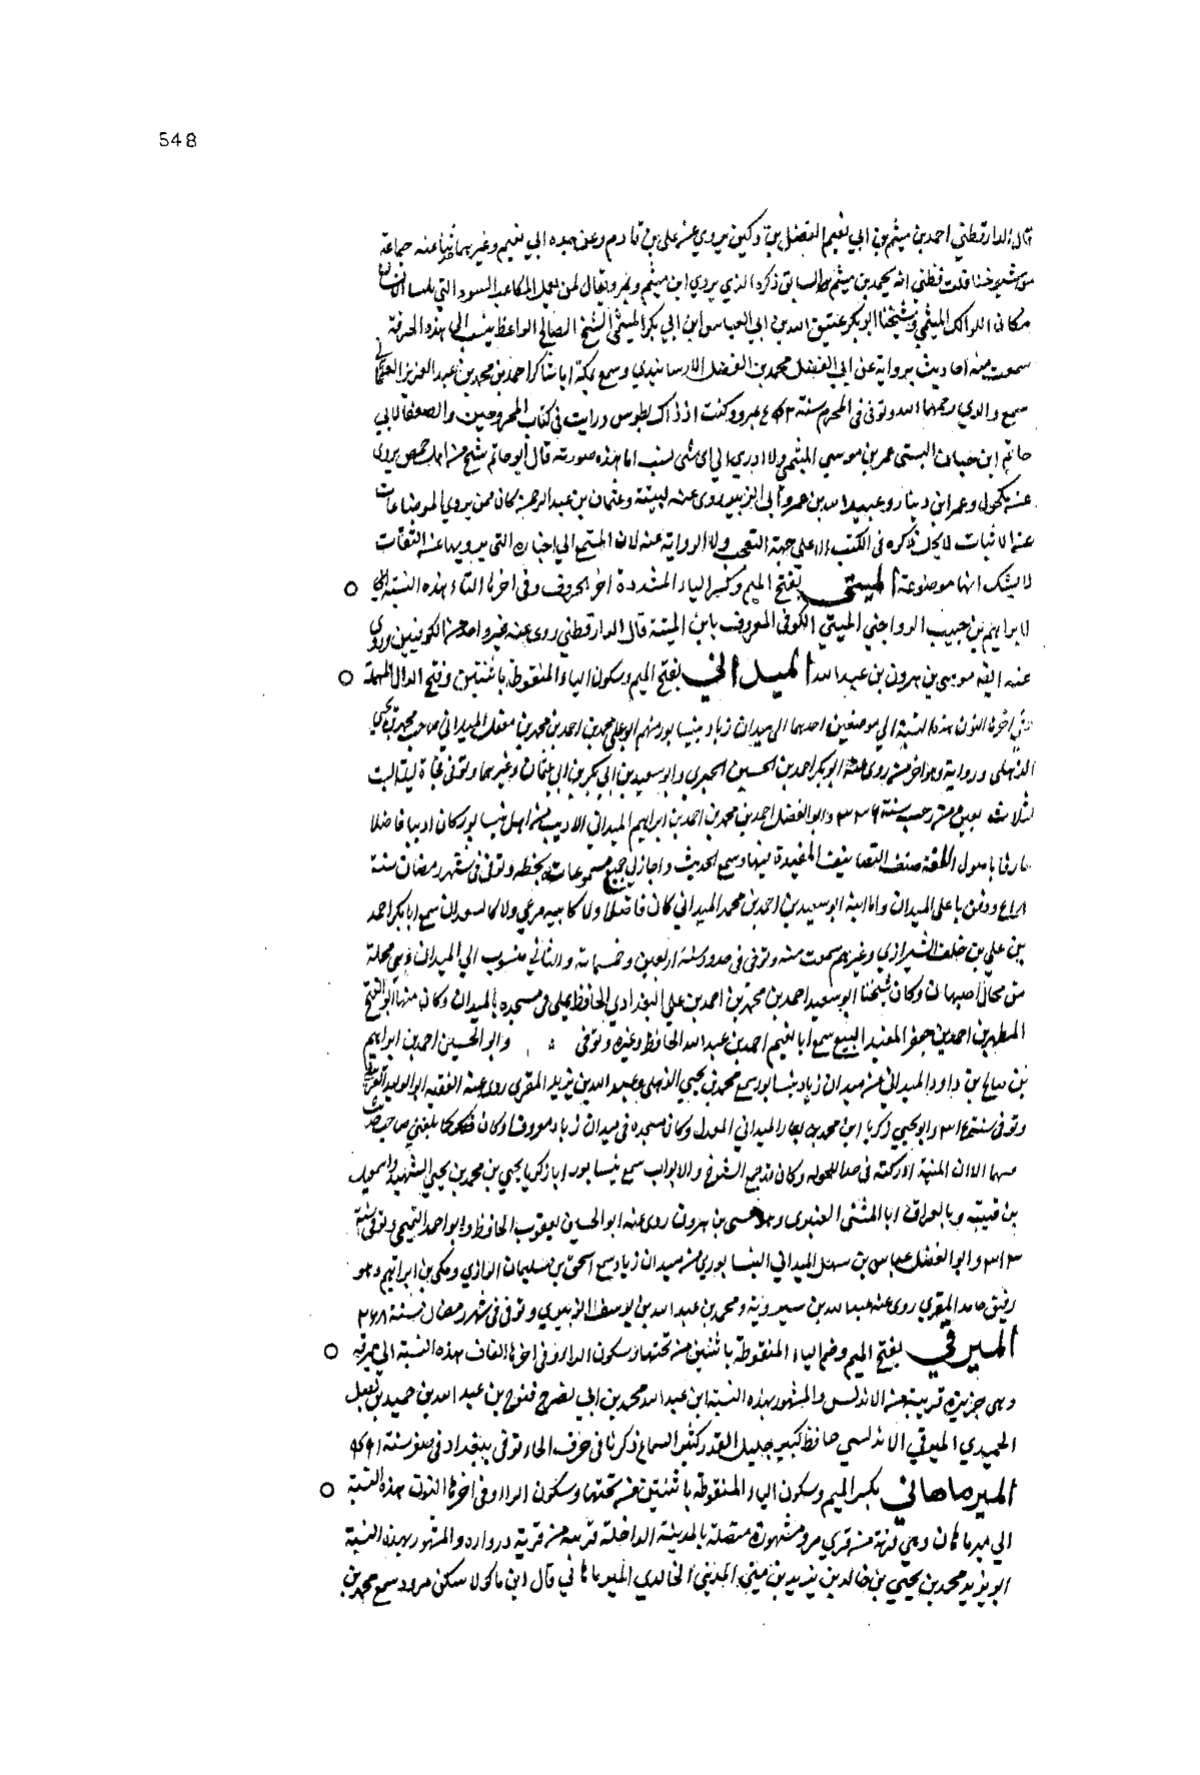 548
قال الدارقطني احمد بن ميثم بن ابي نعيم الفضل بن دكين يروي عن علي بن قادم وعن جده ابي نعيم وغيرهما عنه جماعة
من شيوخنا قلت فظني انه محمد بن ميثم السابق ذكره الذي يروي ابن ميثم ويقال لمن يعمل المكاعب السود التي
مكان اللوالك الميثمي وشيخنا ابو بكر عتيق الله بن ابي العباس ابن ابي بكر الميثمي الشيخ الصالح الواعظ ينسب الى هذه الحرفة
سمعت منه احاديث بروايته عن ابي الفضل محمد بن الفضل الارسانيدي وسمع بمكة ابا شاكر احمد بن محمد بن عبد العزيز
سمع والدي رحمهما الله وتوفي في المحرم سنة بمرو وكنت اذ ذاك بطوس ورايت في كتاب المجروحين والضعفا لابي
حاتم ابن حبان البستي عمر بن موسى الميثمي ولا ادري الى اي شي نسب اما هذه صورته قال ابو حاتم شيخ من اهل حمص يروي
عن مكحول وعمرو ابن دينار وعبيد الله بن عمر وابي الزبير روى عنه بقية وعثمان بن عبد الرحمن كان ممن يروي الموضوعات
عن الاثبات لا يحل ذكره في الكتب الا على جهة التعجب ولا الرواية عنه لان المستمع الى اخباره التي يرويها عن الثقات
لا يشك انها موضوعة الميتي بفتح الميم وكسر الياء المشددة اخر الحروف وفي اخرها التاء هذه النسبة
لابراهيم بن حبيب الرواجني الميتي الكوفي المعروف بابن الميتة قال الدارقطني روى عنه غير واحد من الكوفيين وروى
عنه ابنه موسى بن هرون بن عبد الله الميداني بفتح الميم وسكون الياء المنقوطة باثنتين وفتح الدال المهملة
وفي اخرها النون هذه النسبة الى موضعين احدهما الى ميدان زياد بنيسابور منهم ابو علي محمد بن احمد بن محمد بن معقل الميداني صاحب محمد بن يحيى
الذهلي وروايته وهو اخر من روى عنه ابو بكر احمد بن الحسين الحيري وابو سعيد بن ابي بكر بن ابي عثمان وغيرهما وتوفي فجاة ليلة السبت
لثلاث بقين من رجب سنة ٣٣٦ وابو الفضل احمد بن محمد بن احمد بن ابراهيم الميداني الاديب من اهل نيسابور كان اديبا فاضلا
عارفا باصول اللغة صنف التصانيف المفيدة فيها وسمع الحديث واجاز لي جميع مسموعاته بخطه وتوفي في شهر رمضان سنة
ودفن باعلى الميدان واما ابنه ابو سعيد بن احمد بن محمد الميداني كان فاضلا ولا كابيه مرعى ولا كالسعدان سمع ابا بكر احمد
بن علي بن خلف الشيرازي وغيرهم سمعت منه وتوفي في حدود سنة اربعين وخمسمائة والثاني منسوب الى الميدان وهي محلة
من محال اصبهان وكان شيخنا ابو سعيد احمد بن محمد بن احمد بن علي البغدادي الحافظ يملي في مسجده بالميدان وكان منها ابو الفتح
المطهر بن احمد بن جعفر المفيد البيع سمع ابا نعيم احمد بن عبد الله الحافظ وغيره وتوفي وابو الحسين احمد بن ابراهيم
بن صالح بن داود الميداني من ميدان زياد بنيسابور سمع محمد بن يحيى الذهلي وعبد الله بن يزيد المقري روى عنه الفقيه ابو الوليد
وتوفي سنة وابو يحيى زكريا ابن محمد بن بكار الميداني المعدل وكان مسجده في ميدان زياد معروفا وكان
الا ان المنية ادركته وكان قد جمع الشيوخ والابواب سمع بنيسابور ابا زكريا يحيى بن محمد بن يحيى الشهيد واسمعيل
بن قتيبة وبالعراق ابا المثنى العنبري وموسى بن هرون روى عنه ابو الحسين يعقوب الحافظ وابو احمد التميمي وتوفي سنة
وابو الفضل عباس بن سهل الميداني النيسابوري من ميدان زياد سمع اسحق بن سليمان الرازي ومكي بن ابراهيم وهو
رفيق حامد المقري روى عنه عبد الله بن شيرويه ومحمد بن عبد الله بن يوسف الزبيري وتوفي في شهر رمضان سنة ٢٦٨
الميرقي بفتح الميم وضم الياء المنقوطة باثنتين من تحتها وسكون الراء وفي اخرها القاف هذه النسبة الى ميرقه
وهي جزيرة قريبة من الاندلس والمشهور بهذه النسبة ابن عبد الله محمد بن ابي نصر فتوح بن عبد الله بن حميد بن يصل
الحميدي الميرقي الاندلسي حافظ كبير جليل القدر كثير السماع ذكرناه في حرف الحاء توفي ببغداد في صفر سنة
الميرماهاني بكسر الميم وسكون الياء المنقوطة باثنتين من تحتها وسكون الراء وفي اخرها النون هذه النسبة
الى ميرماهان وهي قرية من قرى مرو مشهورة متصلة بالمدينة الداخلة قريبة من قرية درواره والمشهور بهذه النسبة
ابو يزيد محمد بن يحيى بن خالد بن يزيد بن متى المديني الخالدي الميرماهاني قال ابن ماكولا سكن مرو سمع محمد بن